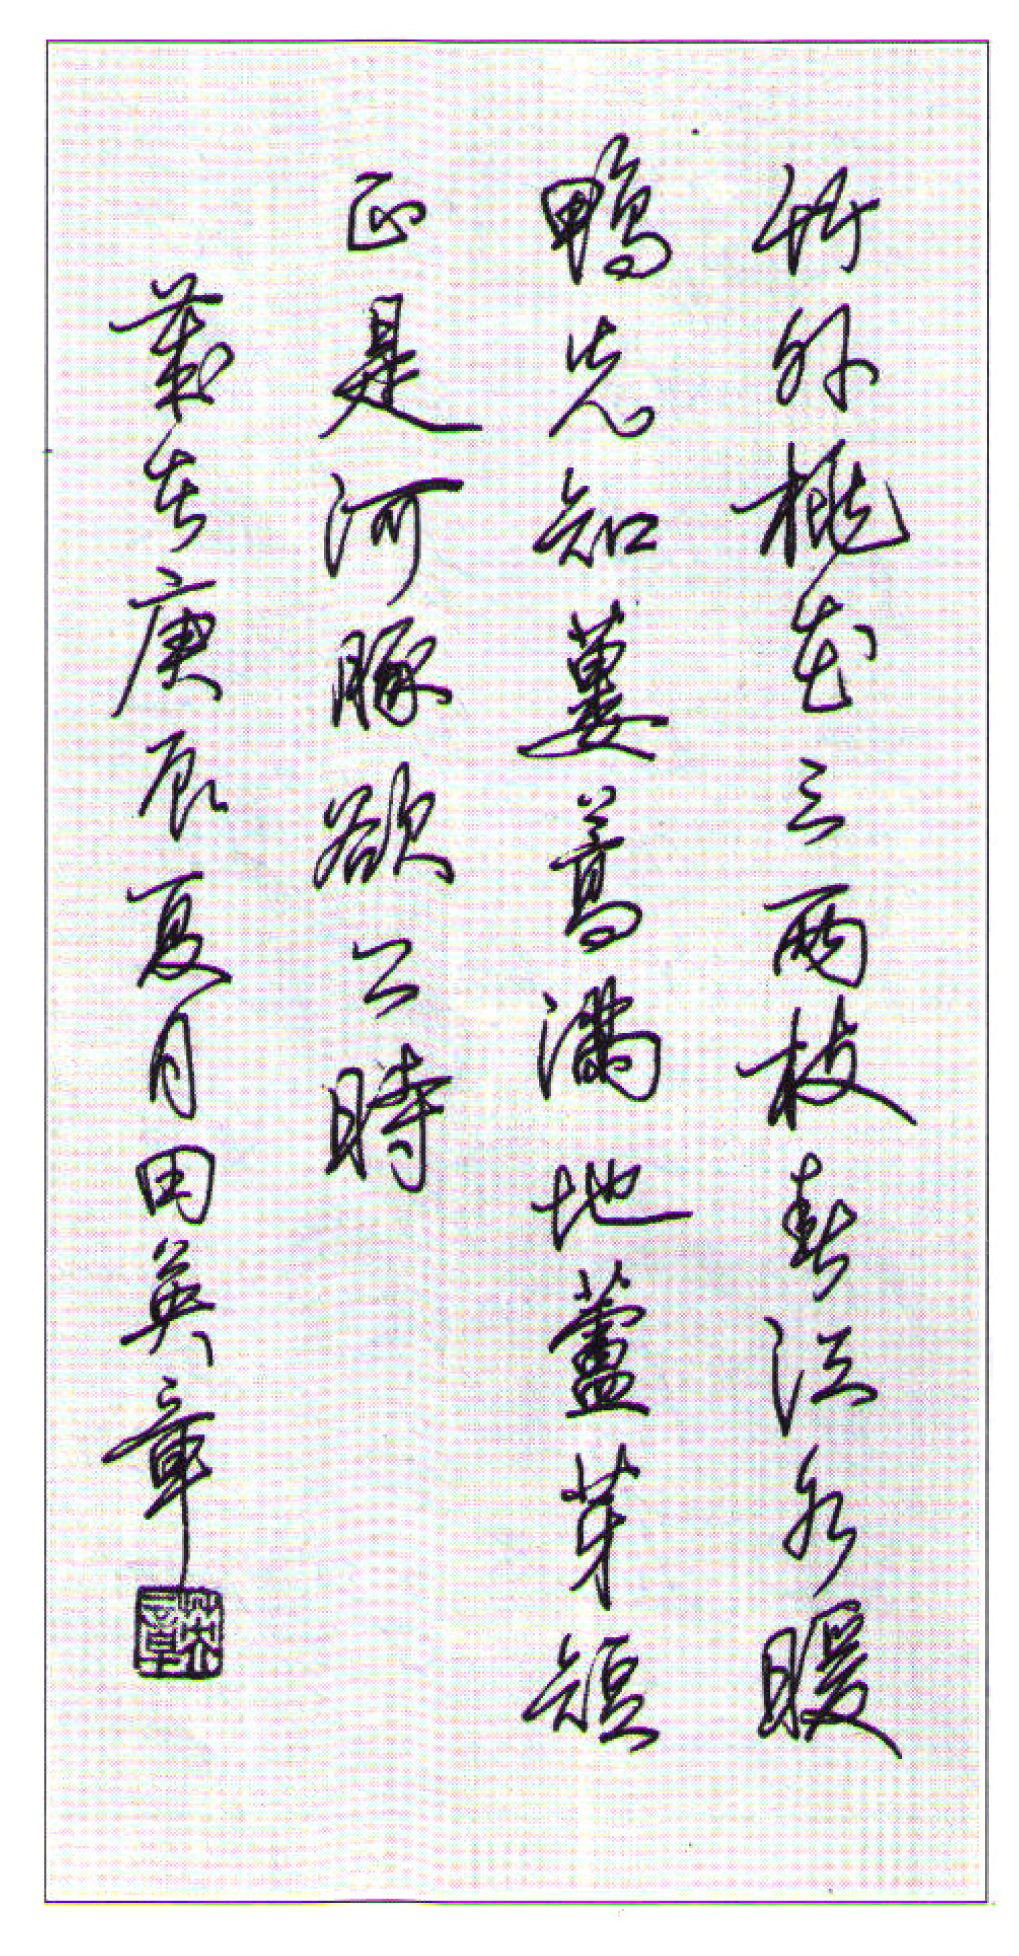 竹外桃花三两枝春江水暖
鸭先知蒌蒿满地蘆芽短
正是河豚欲上時
歲在庚辰夏月田英章
英章